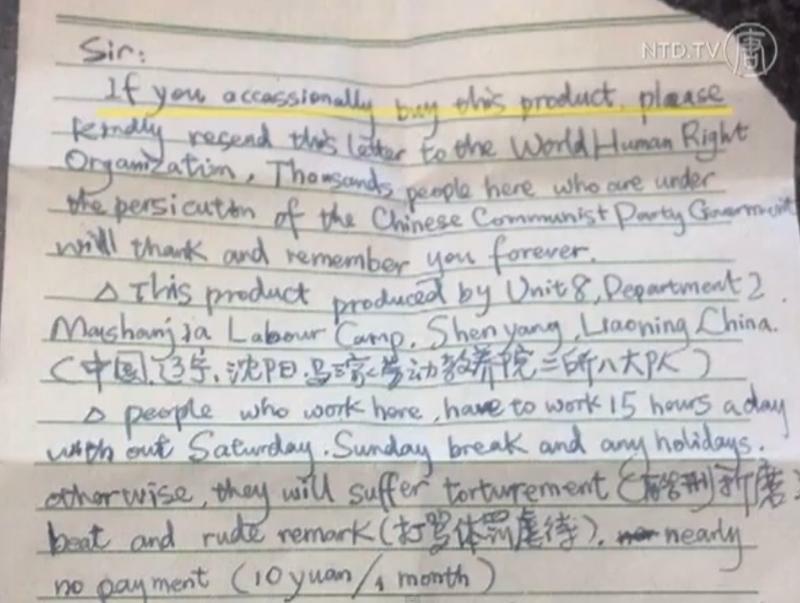 NTD.TV
Sir:
If you accassionally buy this product, please
kindly resend this letter to the World Human Right
Organization. Thousands people here who are under
the persicution of the Chinese Communist Party Government
will thank and remember you forever.
△ This product produced by Unit 8, Department 2,
Mashanjia Labour Camp, Shenyang, Liaoning China.
(中国.辽宁.沈阳.马三家劳动教养院二所八大队)
△ people who work here, have to work 15 hours a day
with out Saturday. Sunday break and any holidays.
otherwise, they will suffer torturement 折磨
beat and rude remark (打骂体罚虐待). nearly
no payment (10 yuan/1 month)